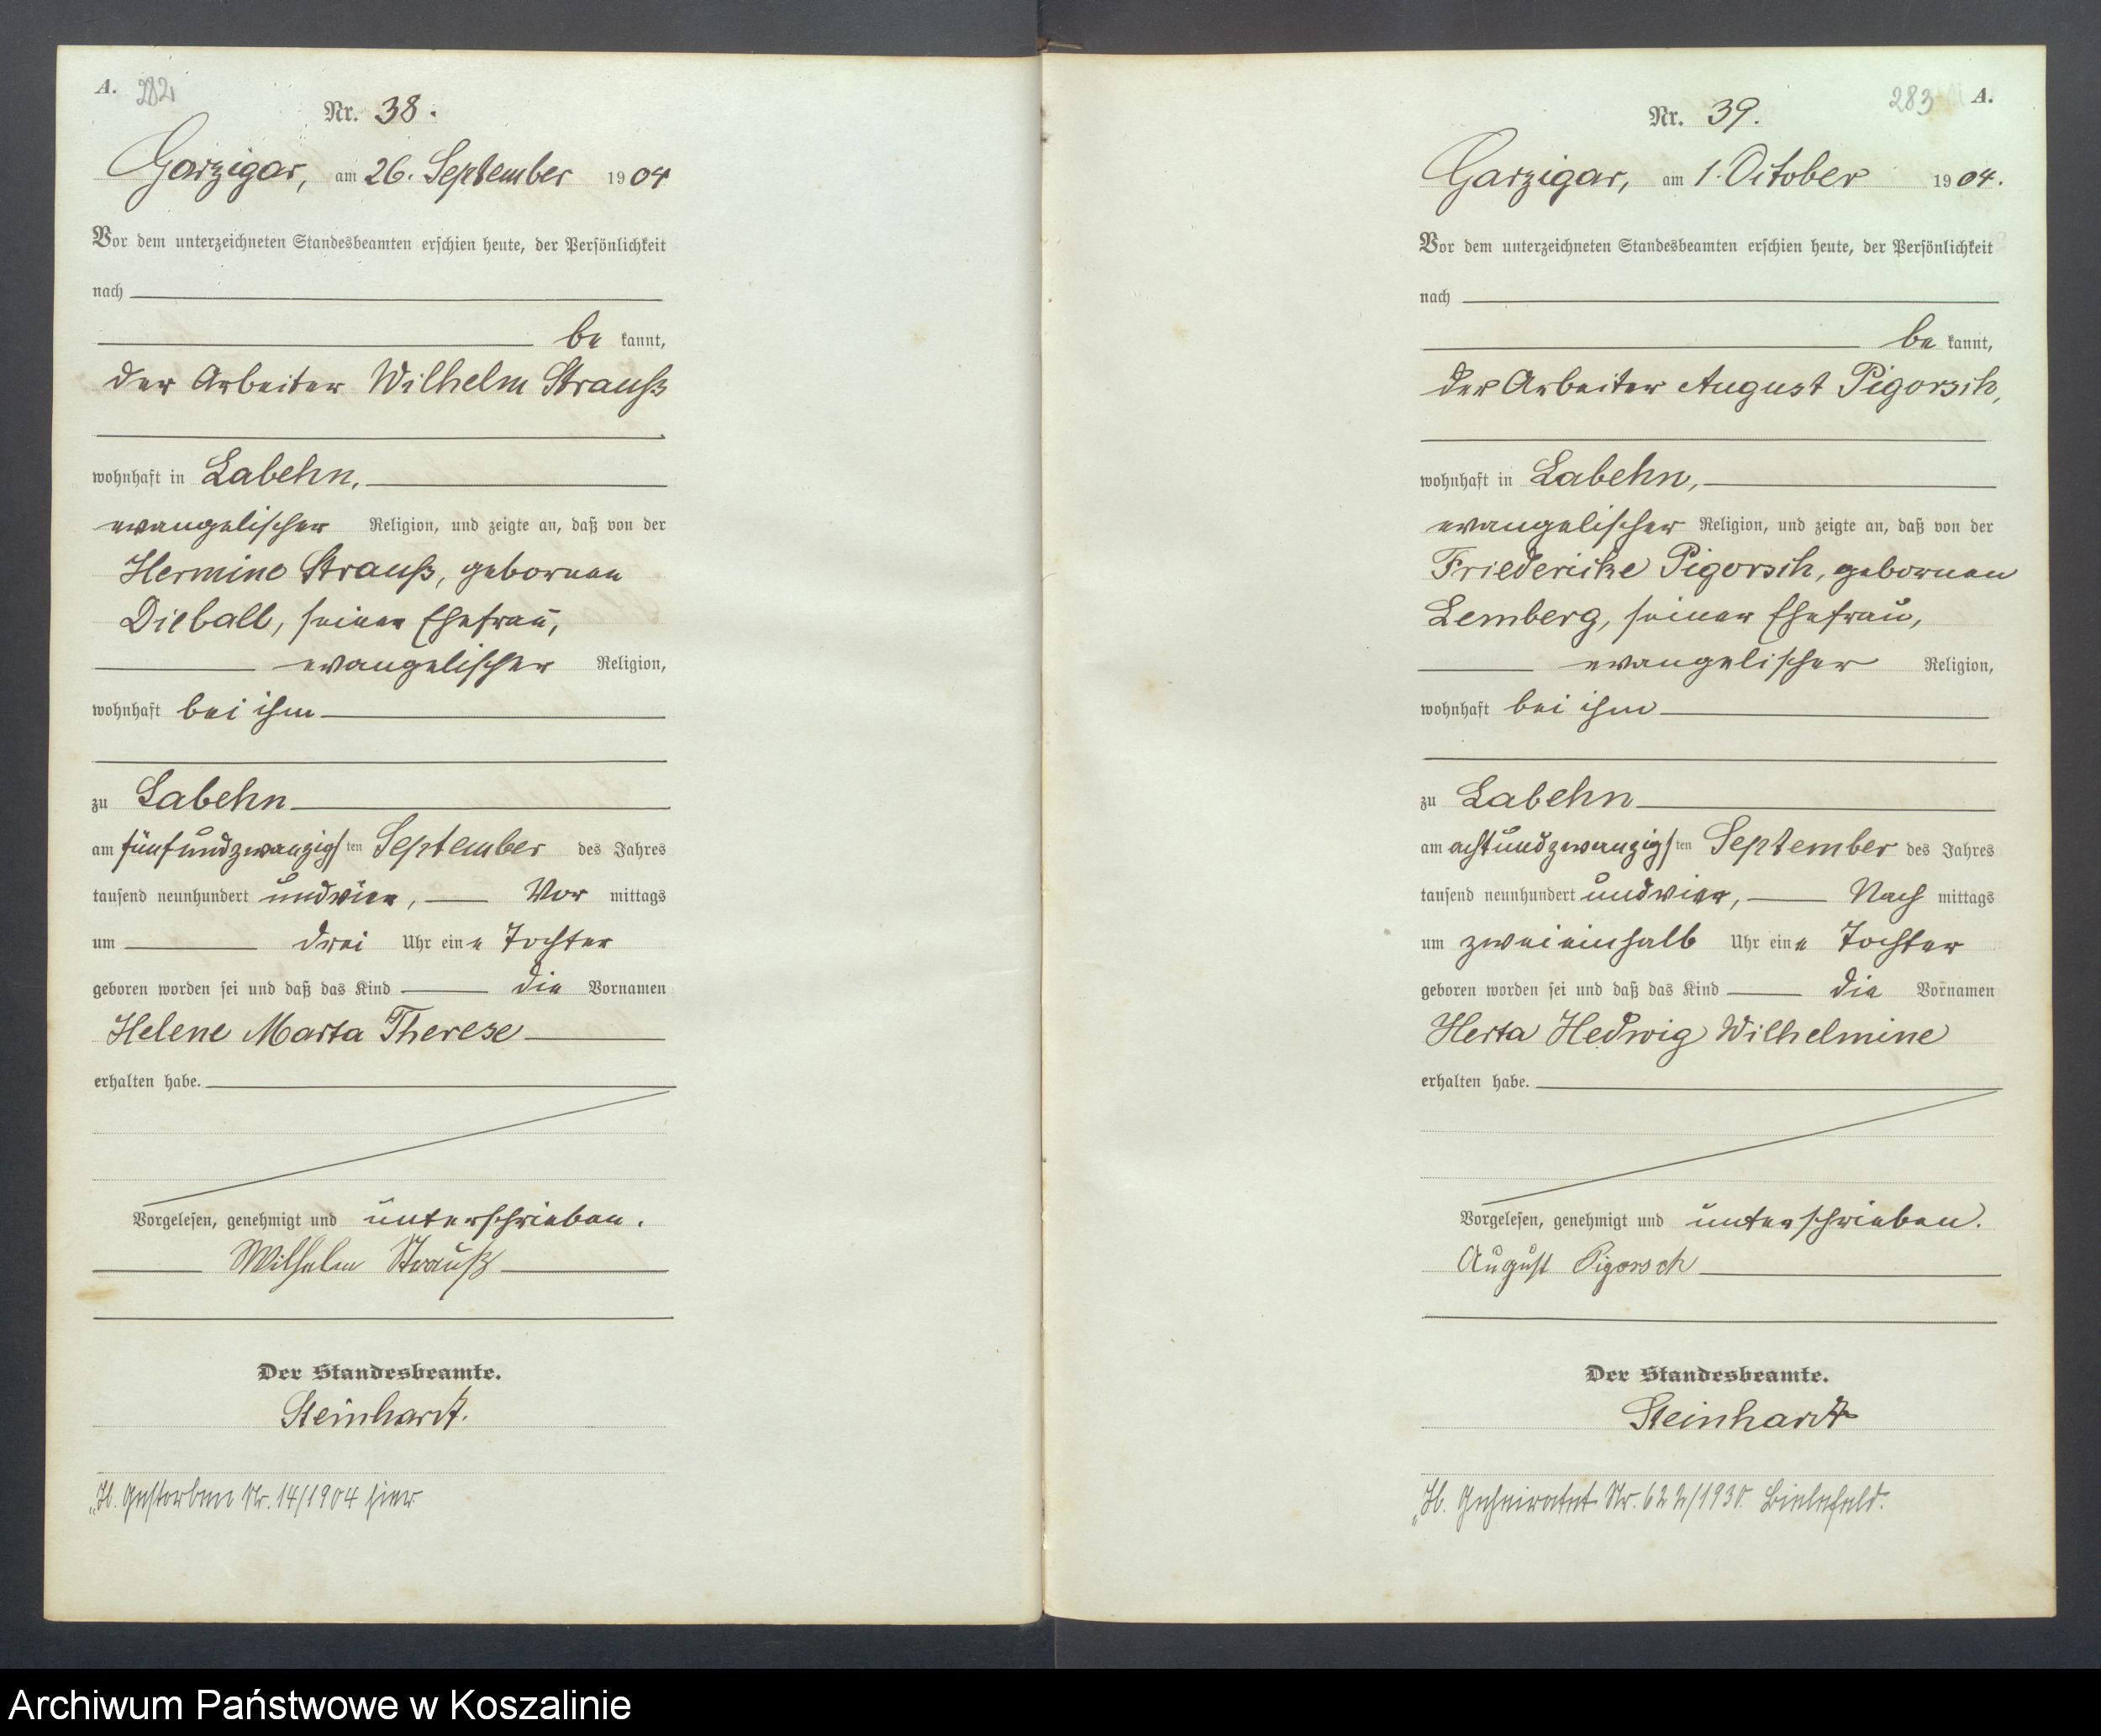 A. 282
Nr. 38.
Garzigar, am 26. September 1904
Vor dem unterzeichneten Standesbeamten erschien heute, der Persönlichkeit
nach
be kannt,
der Arbeiter Wilhelm Strauß
wohnhaft in Labehn,
evangelischer Religion, und zeigte an, daß von der
Hermine Strauß, gebornen
Dieball, seiner Ehefrau,
evangelischer Religion,
wohnhaft bei ihm
zu Labehn
am fünfundzwanzigsten September des Jahres
tausend neunhundert undvier, Vor mittags
um drei Uhr eine Tochter
geboren worden sei und daß das Kind die Vornamen
Helene Marta Therese
erhalten habe.
Vorgelesen, genehmigt und unterschrieben.
Wilhelm Strauß
Der Standesbeamte.
Steinhardt.
H. Gestorben Nr. 14/1904 hier
283 A.
Nr. 39.
Garzigar, am 1. October 1904.
Vor dem unterzeichneten Standesbeamten erschien heute, der Persönlichkeit
nach
be kannt,
der Arbeiter August Pigorsch,
wohnhaft in Labehn,
evangelischer Religion, und zeigte an, daß von der
Friedericke Pigorsch, gebornen
Lemberg, seiner Ehefrau,
evangelischer Religion,
wohnhaft bei ihm
zu Labehn
am achtundzwanzigsten September des Jahres
tausend neunhundert undvier, Nach mittags
um zweieinhalb Uhr eine Tochter
geboren worden sei und daß das Kind die Vornamen
Herta Hedwig Wilhelmine
erhalten habe.
Vorgelesen, genehmigt und unterschrieben.
August Pigorsch
Der Standesbeamte.
Steinhardt
H. Geheiratet Nr. 622/1930 Bielefeld.
Archiwum Państwowe w Koszalinie